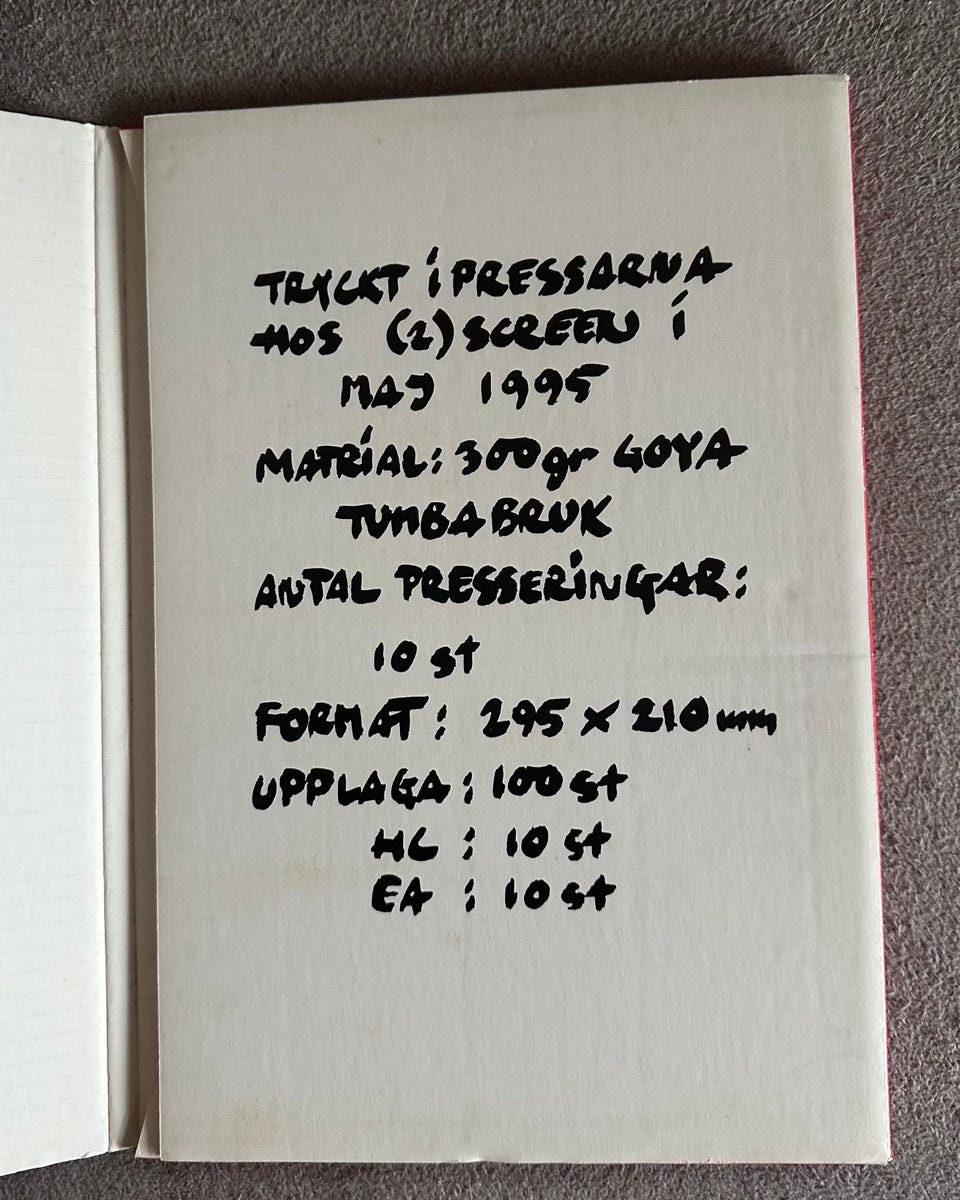 TRYCKT i PRESSARNA
HOS (2) SCREEN i
MAJ 1995
MATRiAL: 300gr GOYA
TUMBA BRUK
ANTAL PRESSERiNGAR:
10 st
FORMAT: 295 x 210 mm
UPPLAGA: 100 st
HC : 10 st
EA : 10 st